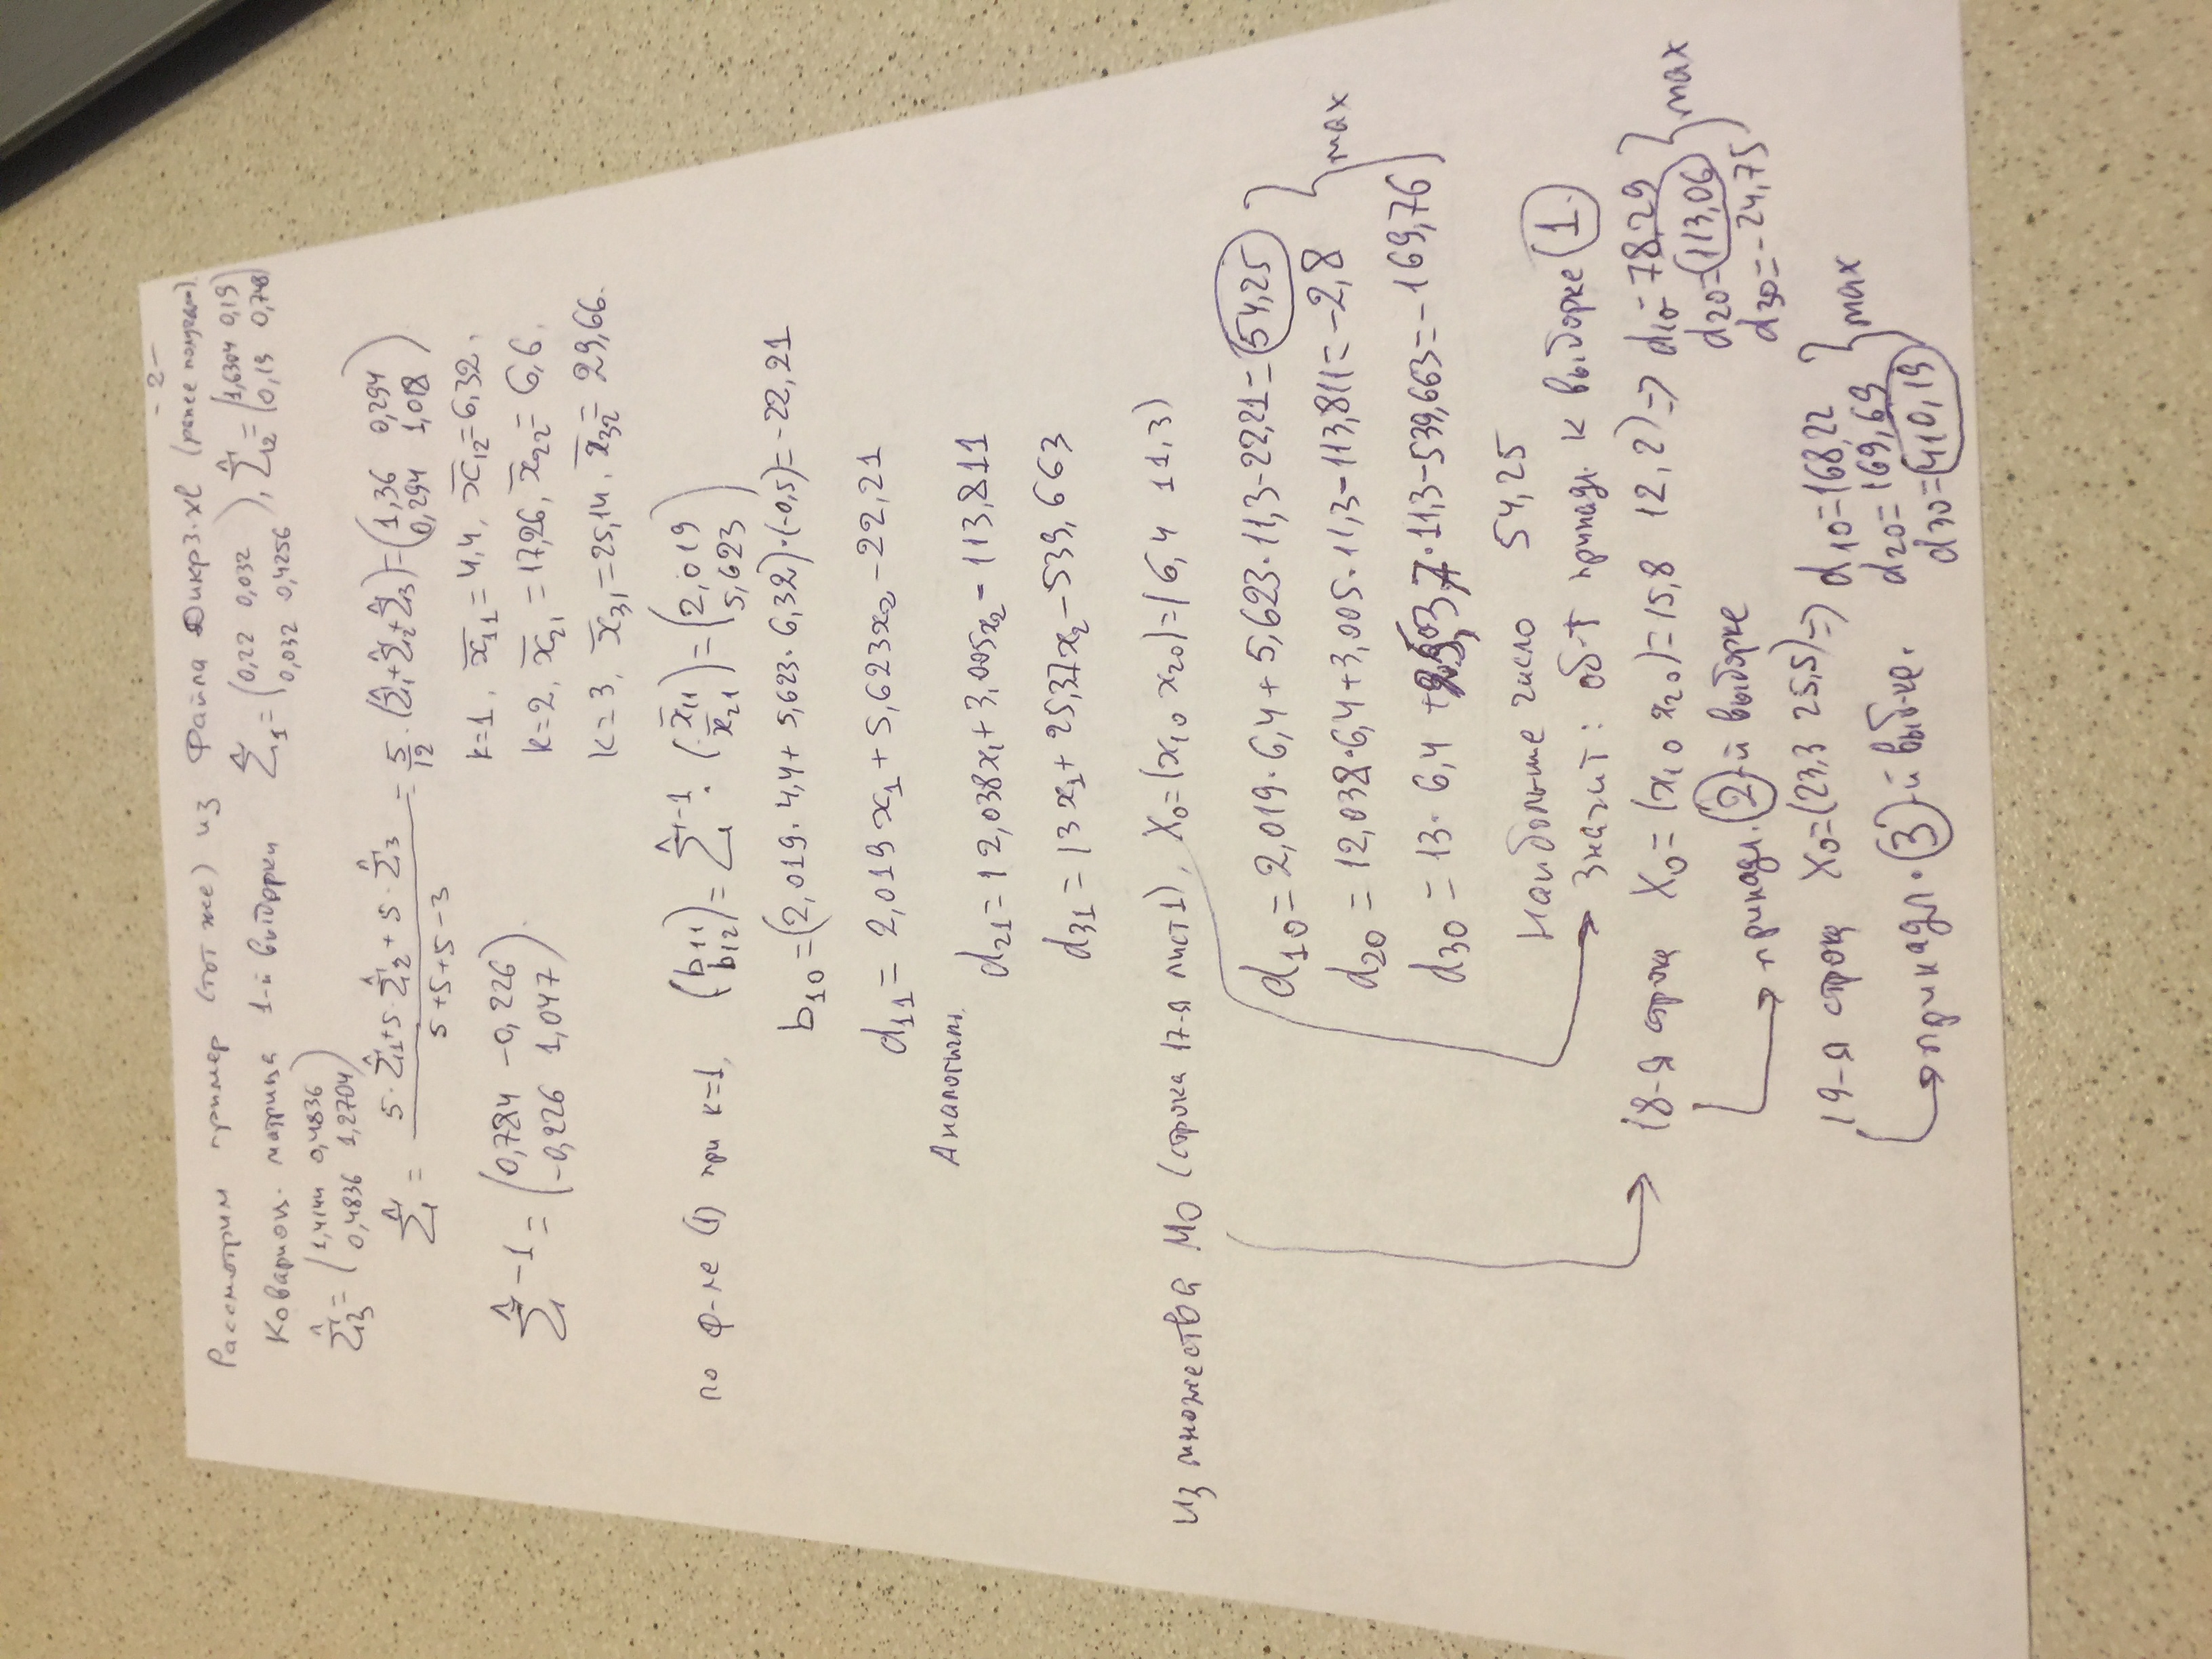 - 2 -
Рассмотрим пример (тот же) из Файла Дикр3.xl (ранее получали).
Ковариац. матрица 1-й выборки Σ̂₁ = (0,22 0,032 / 0,032 0,4256), Σ̂₂ = (1,6304 0,19 / 0,19 0,748)
Σ̂₃ = (1,4144 0,4836 / 0,4836 1,2704)
Σ̂ = (5·Σ̂₁ + 5·Σ̂₂ + 5·Σ̂₃) / (5+5+5-3) = 5/12 · (Σ̂₁+Σ̂₂+Σ̂₃) = (1,36 0,294 / 0,294 1,018)
Σ̂⁻¹ = (0,784 -0,226 / -0,226 1,047).
k=1, x̄₁₁=4,4, x̄₁₂=6,32,
k=2, x̄₂₁=17,26, x̄₂₂=6,6,
k=3, x̄₃₁=25,14, x̄₃₂=29,66.
по ф-ле (1) при k=1, (b₁₁ / b₁₂) = Σ̂⁻¹ · (x̄₁₁ / x̄₂₁) = (2,019 / 5,623)
b₁₀ = (2,019·4,4 + 5,623·6,32)·(-0,5) = -22,21
d₁₁ = 2,019x₁ + 5,623x₂ - 22,21
Аналогичн.
d₂₁ = 12,038x₁ + 3,005x₂ - 113,811
d₃₁ = 13x₁ + 25,37x₂ - 539,663
Из множества M0 (строка 17-я лист1), X₀=(x₁₀ x₂₀)=(6,4 11,3)
d₁₀ = 2,019·6,4 + 5,623·11,3 - 22,21 = 54,25
d₂₀ = 12,038·6,4 + 3,005·11,3 - 113,811 = -2,8
max
d₃₀ = 13·6,4 + 25,37·11,3 - 539,663 = -169,76
Наибольшее число 54,25
Значит: об-т принадл. к выборке 1.
18-я строка X₀ = (x₁₀ x₂₀) = 15,8 12,2) => d₁₀ = 78,29
d₂₀ = 113,06
max
d₃₀ = -24,75
принадл. 2-й выборке
19-я строка X₀=(23,3 25,5) => d₁₀=168,22
d₂₀=169,69
max
принадл. 3-й выб-ке.
d₃₀=410,19